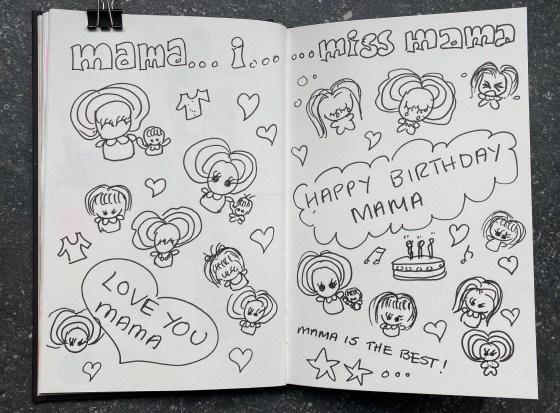 mama... i... ...miss mama
HAPPY BIRTHDAY
MAMA
LOVE YOU
MAMA
MAMA IS THE BEST!